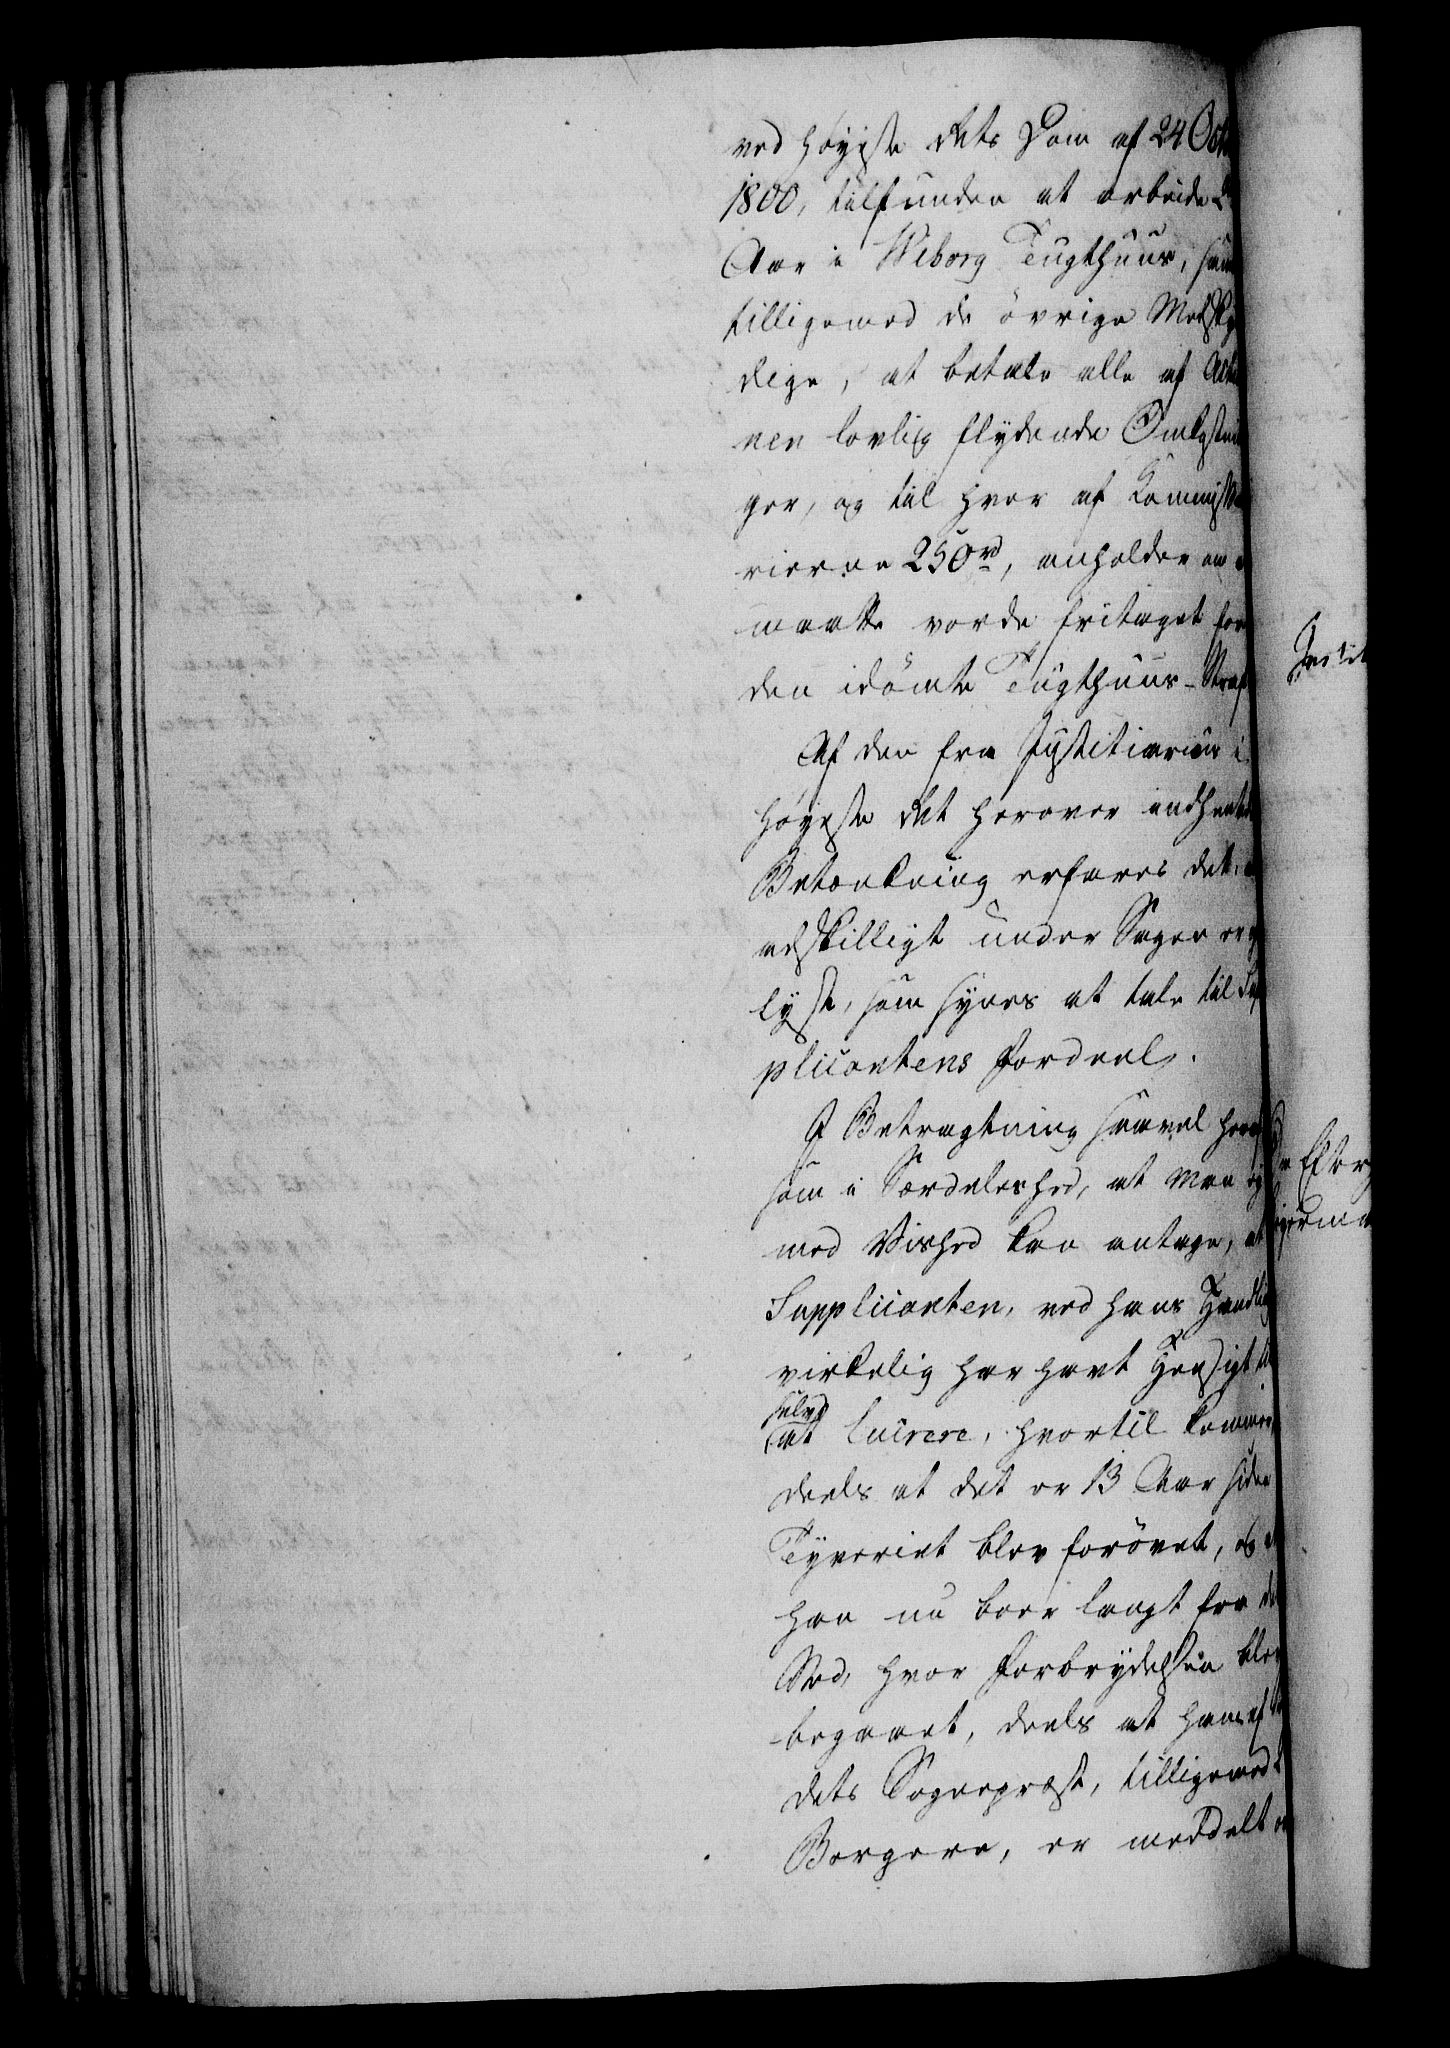 ved Høyeste Rets Dom af 24 Octo
1800, tilfunden at arbeide 2
Aar i Wiborg Tugthuus, sam
tilligemed de øvrige Medsky
dige, at betale alle af Actio
nen lovlig flydende Omkostnin
ger, og til hver af Kommissa
rierne 250 rd, anholder om
maatte vorde fritaget for
den idømte Tugthuus-Straf
Af den fra Justitiarius i
Høyeste Ret herover indhentede
Betænkning erfares det, at
adskilligt under Sagen er op
lyst, som synes at tale til Sup
plicantens Fordeel.
I Betragtning saavel heraf
som i Særdeleshed, at man ey
med Vished kan antage, at
Supplicanten, ved hans Handling
virkelig har havt Hensigt til
selv
at lucrere, hvortil kommer,
deels at det er 13 Aar siden
Tyveriet blev forøvet, og at
han nu boer langt fra det
Sted, hvor Forbrydelsen blev
begaaet, deels at ham af
dets Sognepræst, tilligemed
Borgere, er meddelt